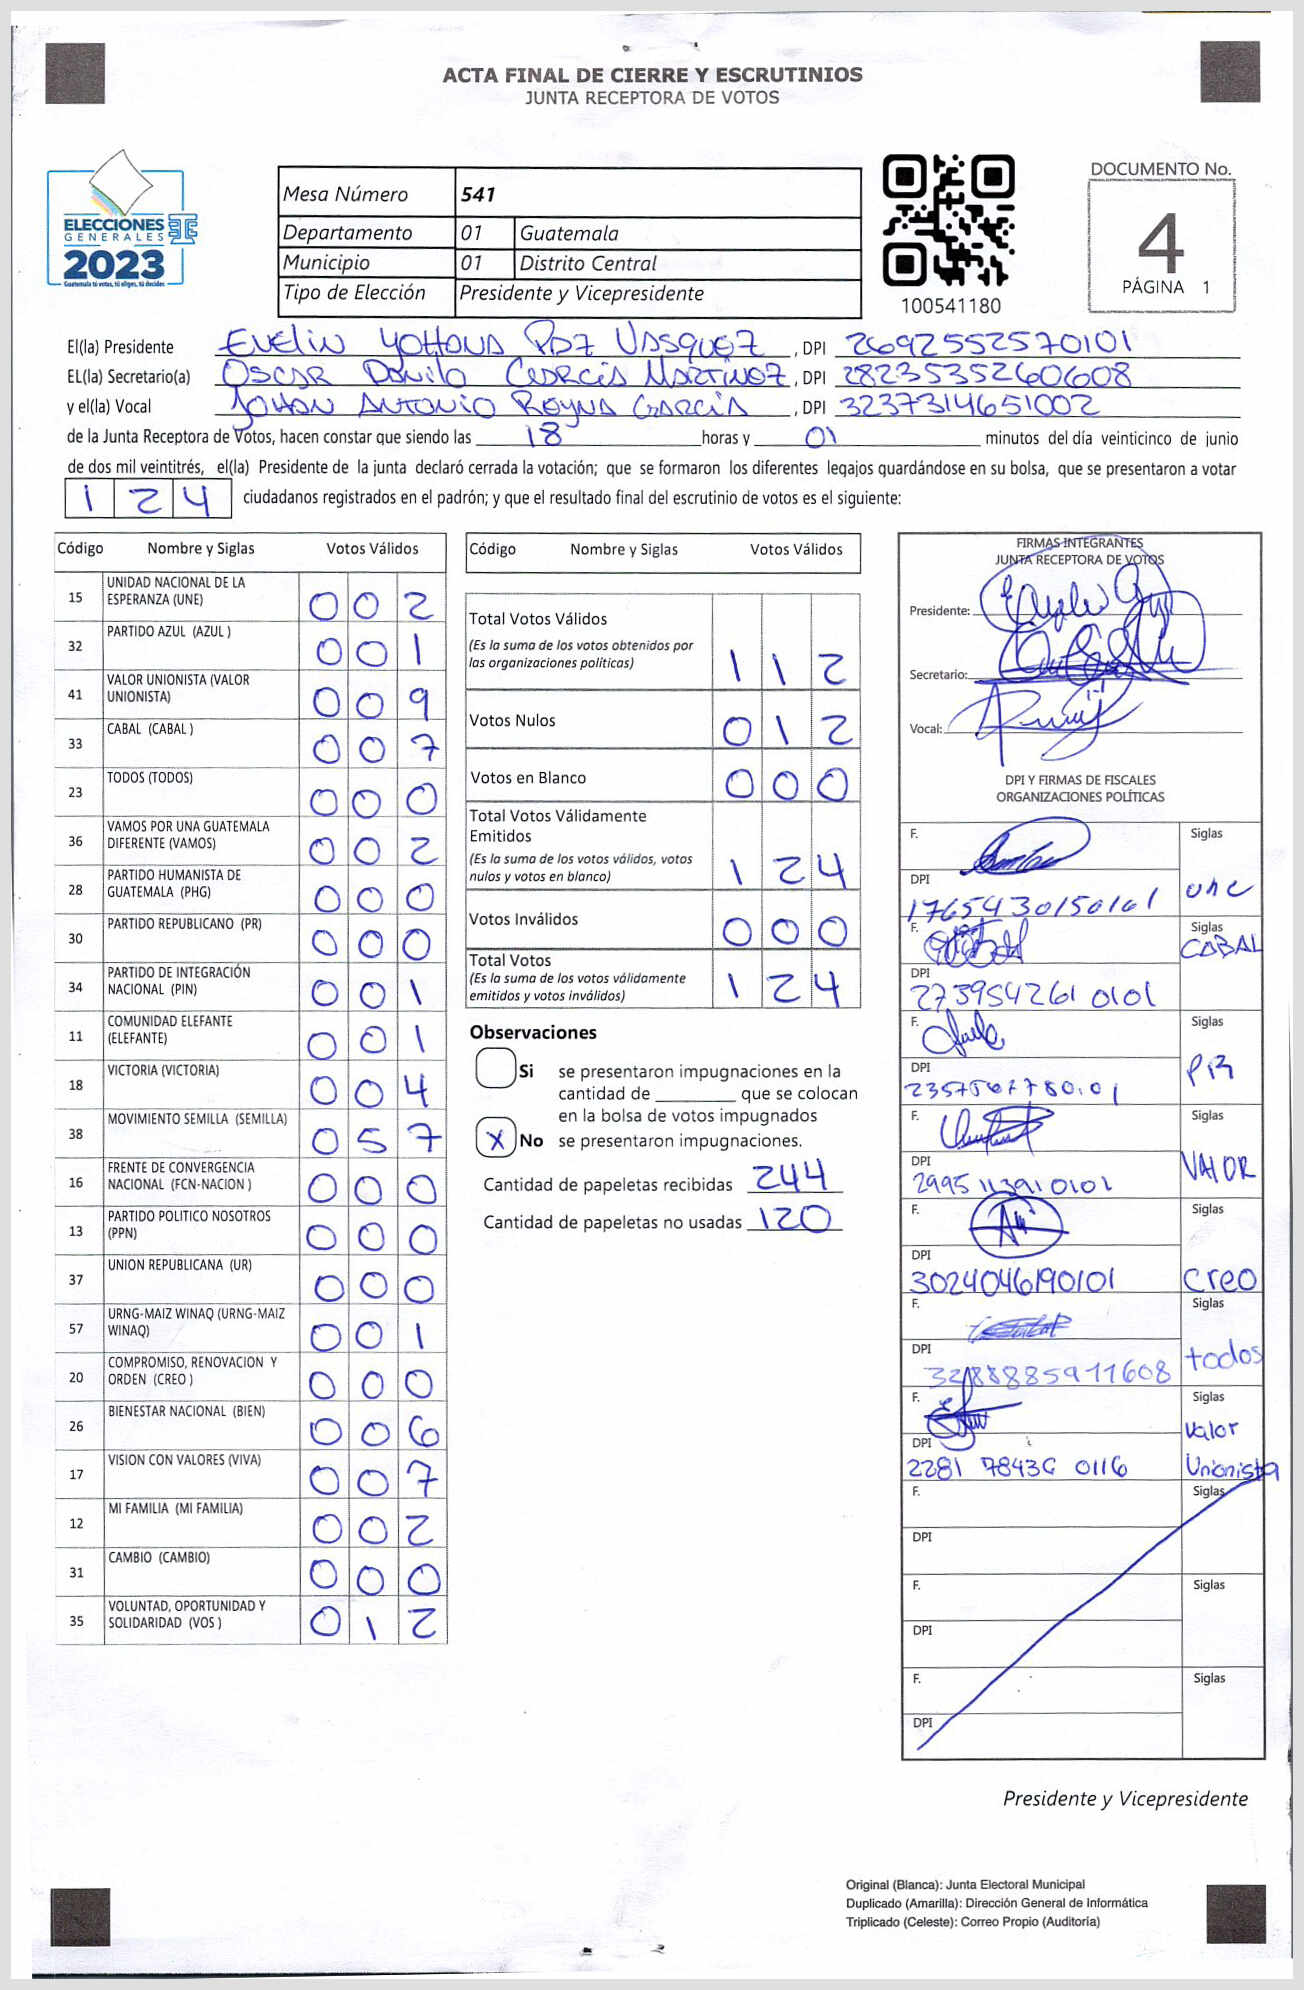 ACTA FINAL DE CIERRE Y ESCRUTINIOS
JUNTA RECEPTORA DE VOTOS
ELECCIONES
GENERALES
2023
Guatemala tú votas, tú eliges, tú decides
Mesa Número 541
Departamento 01 Guatemala
Municipio 01 Distrito Central
Tipo de Elección Presidente y Vicepresidente
100541180
DOCUMENTO No.
4
PÁGINA 1
El(la) Presidente Evelin Yohana Paz Vasquez, DPI 2692552570101
EL(la) Secretario(a) Oscar Danilo García Martínez, DPI 2823535260608
y el(la) Vocal Johan Antonio Reyna García, DPI 3237314651002
de la Junta Receptora de Votos, hacen constar que siendo las 18 horas y 01 minutos del día veinticinco de junio
de dos mil veintitrés, el(la) Presidente de la junta declaró cerrada la votación; que se formaron los diferentes legajos guardándose en su bolsa, que se presentaron a votar
124 ciudadanos registrados en el padrón; y que el resultado final del escrutinio de votos es el siguiente:
Código Nombre y Siglas Votos Válidos
15 UNIDAD NACIONAL DE LA ESPERANZA (UNE) 002
32 PARTIDO AZUL (AZUL ) 001
41 VALOR UNIONISTA (VALOR UNIONISTA) 009
33 CABAL (CABAL ) 007
23 TODOS (TODOS) 000
36 VAMOS POR UNA GUATEMALA DIFERENTE (VAMOS) 002
28 PARTIDO HUMANISTA DE GUATEMALA (PHG) 000
30 PARTIDO REPUBLICANO (PR) 000
34 PARTIDO DE INTEGRACIÓN NACIONAL (PIN) 001
11 COMUNIDAD ELEFANTE (ELEFANTE) 001
18 VICTORIA (VICTORIA) 004
38 MOVIMIENTO SEMILLA (SEMILLA) 057
16 FRENTE DE CONVERGENCIA NACIONAL (FCN-NACION ) 000
13 PARTIDO POLITICO NOSOTROS (PPN) 000
37 UNION REPUBLICANA (UR) 000
57 URNG-MAIZ WINAQ (URNG-MAIZ WINAQ) 001
20 COMPROMISO, RENOVACION Y ORDEN (CREO ) 000
26 BIENESTAR NACIONAL (BIEN) 006
17 VISION CON VALORES (VIVA) 007
12 MI FAMILIA (MI FAMILIA) 002
31 CAMBIO (CAMBIO) 000
35 VOLUNTAD, OPORTUNIDAD Y SOLIDARIDAD (VOS ) 012
Código Nombre y Siglas Votos Válidos
Total Votos Válidos
(Es la suma de los votos obtenidos por
las organizaciones políticas) 112
Votos Nulos 012
Votos en Blanco 000
Total Votos Válidamente
Emitidos
(Es la suma de los votos válidos, votos
nulos y votos en blanco) 124
Votos Inválidos 000
Total Votos
(Es la suma de los votos válidamente
emitidos y votos inválidos) 124
Observaciones
Si se presentaron impugnaciones en la
cantidad de ________ que se colocan
en la bolsa de votos impugnados
X No se presentaron impugnaciones.
Cantidad de papeletas recibidas 244
Cantidad de papeletas no usadas 120
FIRMAS INTEGRANTES
JUNTA RECEPTORA DE VOTOS
Presidente:
Secretario:
Vocal:
DPI Y FIRMAS DE FISCALES
ORGANIZACIONES POLÍTICAS
F. Siglas
DPI une
1765430150101
F. Siglas
CABAL
DPI
2739542610101
F. Siglas
DPI PR
F. Siglas
DPI VALOR
2995113910101
F. Siglas
DPI
3024046190101 creo
F. Siglas
DPI todos
F. Siglas
Valor
DPI
2281 78436 0116 Unionista
F. Siglas
DPI
F. Siglas
DPI
F. Siglas
DPI
Presidente y Vicepresidente
Original (Blanca): Junta Electoral Municipal
Duplicado (Amarilla): Dirección General de Informática
Triplicado (Celeste): Correo Propio (Auditoría)